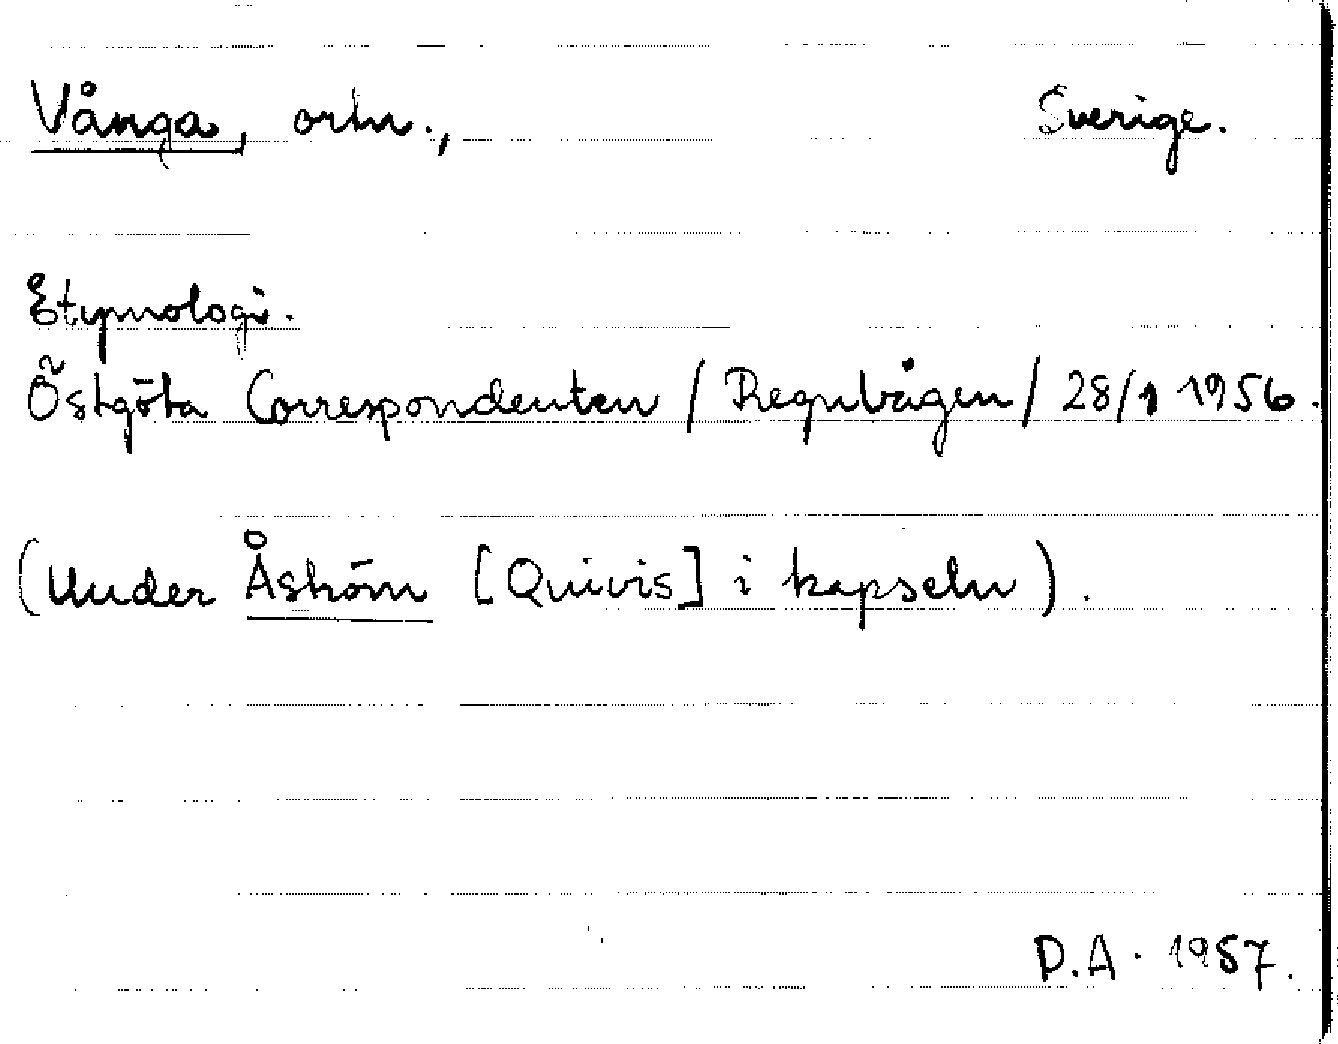 Vånga, ortn., Sverige.
Etymologi.
Östgöta Correspondenten / Regnbågen / 28/1 1956.
(Under Åström [Quivis] i kapseln).
D.A. 1957.